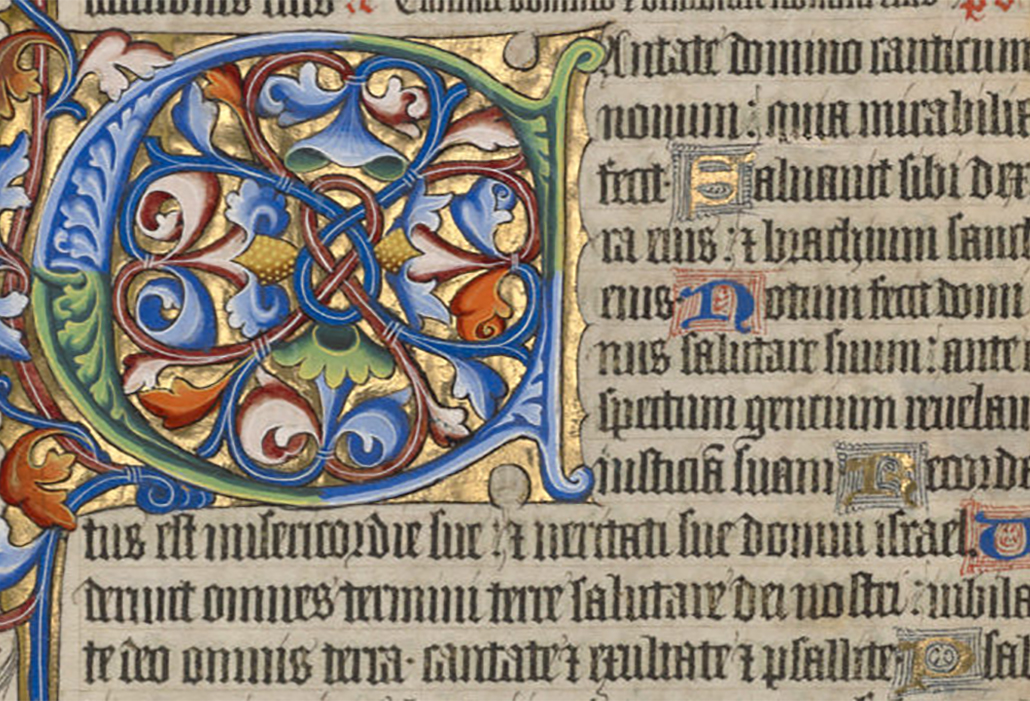 CAntate domino canticum
nouum : quia mirabilia
fecit · Saluauit sibi dex
ra eius : ⁊ brachium sanct
eius · Notum fecit domi
nus salutare suum : ante
spectum gentium reuelau
iusticiā suam Recorda
tus est misericordie sue : ⁊ ueritati sue domui israel · U
derunt omnes termini terre salutare dei nostri : iubila
te deo omnis terra · cantate ⁊ exultate ⁊ psallite · Psal